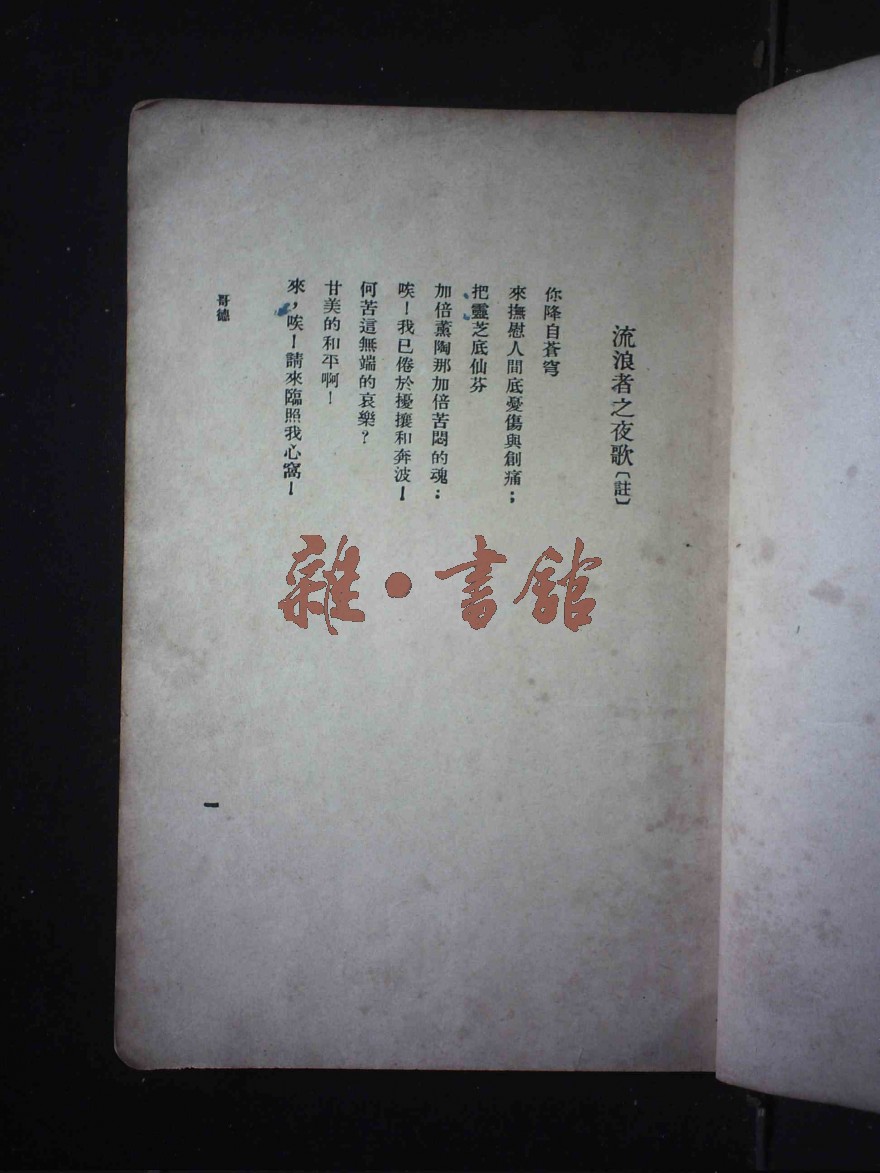 流浪者之夜歌〔註〕
你降自蒼穹
來撫慰人間底憂傷與創痛；
把靈芝底仙芬
加倍薰陶那加倍苦悶的魂：
唉！我已倦於擾攘和奔波！
何苦這無端的哀樂？
甘美的和平啊！
來，唉！請來臨照我心窩！
哥德
一
雜·書館